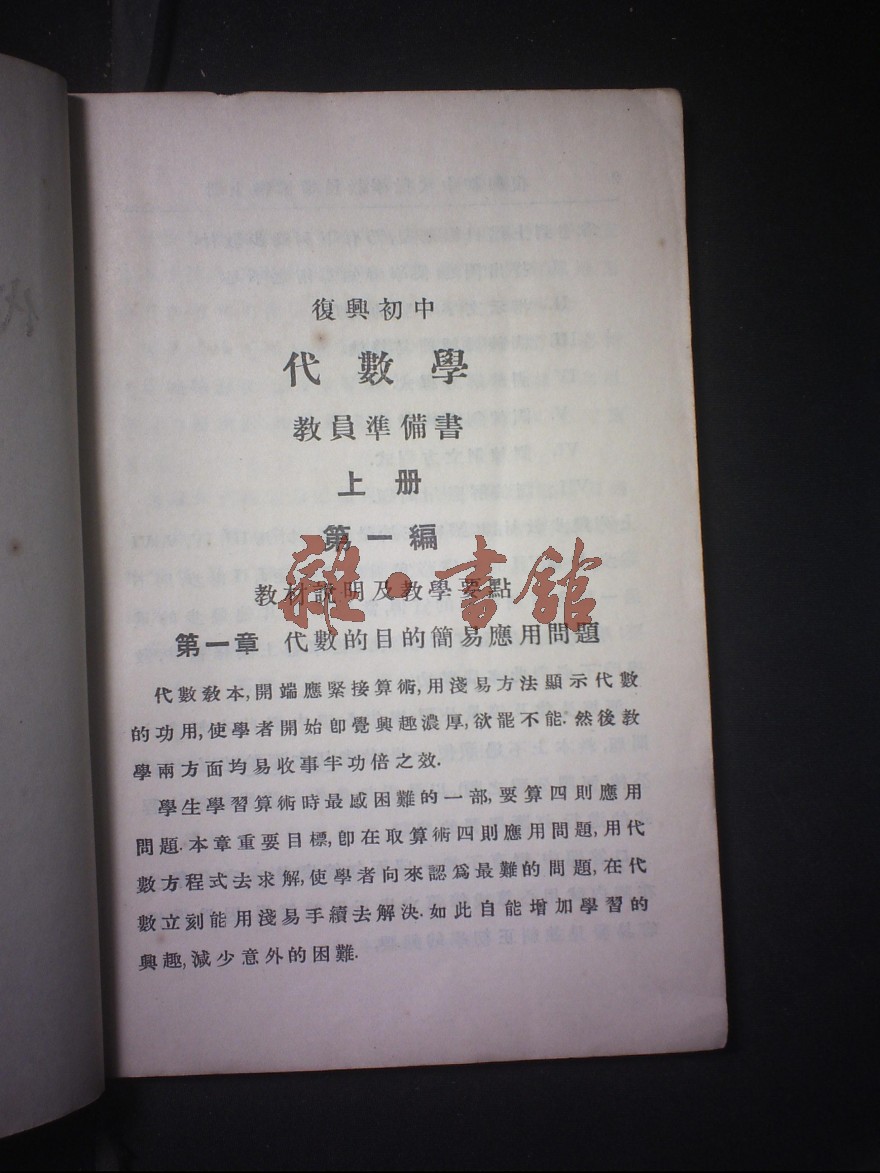 復興初中
代數學
教員準備書
上册
第一編
教材說明及教學要點
雜·書館
第一章 代數的目的簡易應用問題
代數教本,開端應緊接算術,用淺易方法顯示代數
的功用,使學者開始卽覺興趣濃厚,欲罷不能.然後教
學兩方面均易收事半功倍之效.
學生學習算術時最感困難的一部,要算四則應用
問題.本章重要目標,卽在取算術四則應用問題,用代
數方程式去求解,使學者向來認爲最難的問題,在代
數立刻能用淺易手續去解決.如此自能增加學習的
興趣,減少意外的困難.